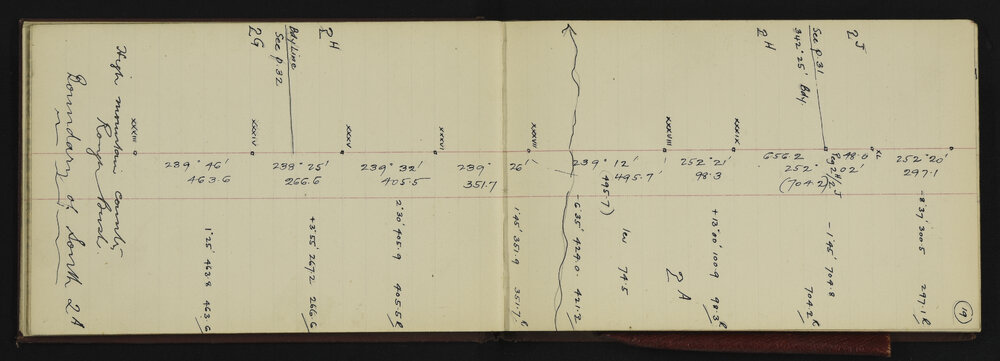 High mountain country
Rough Bush.
Boundary of South 2A
XXXIII
239° 46'
463.6
1°25' 463.8 463.6
XXXIV
2G
2H
Bdy Line
See p. 32
238° 25'
266.6
+3°55' 267.2 266.6
XXXV
239° 32'
405.5
2°30' 405.9 405.5 R
XXXVI
239° 26'
351.7
1°45' 351.9 351.7 R
XXXVII
239° 12'
495.7'
(495.7)
-6°35' 424.0 421.2
lev 74.5
XXXVIII
252° 21'
98.3
+13°00' 100.9 98.3 R
2A
XXXIX
2H
342° 25' Bdy.
See p. 31
2J
656.2
48.0
252° 02'
(704.2)
Peg 2H/2J
-1°45' 704.8 704.2 R
XL
252° 20'
297.1
-8°37' 300.5 297.1 R
19